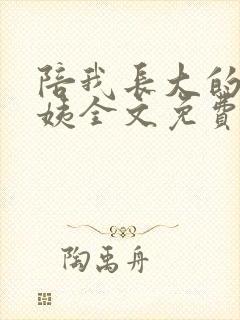 陪我長大的
姨全文免費
陶禹舟